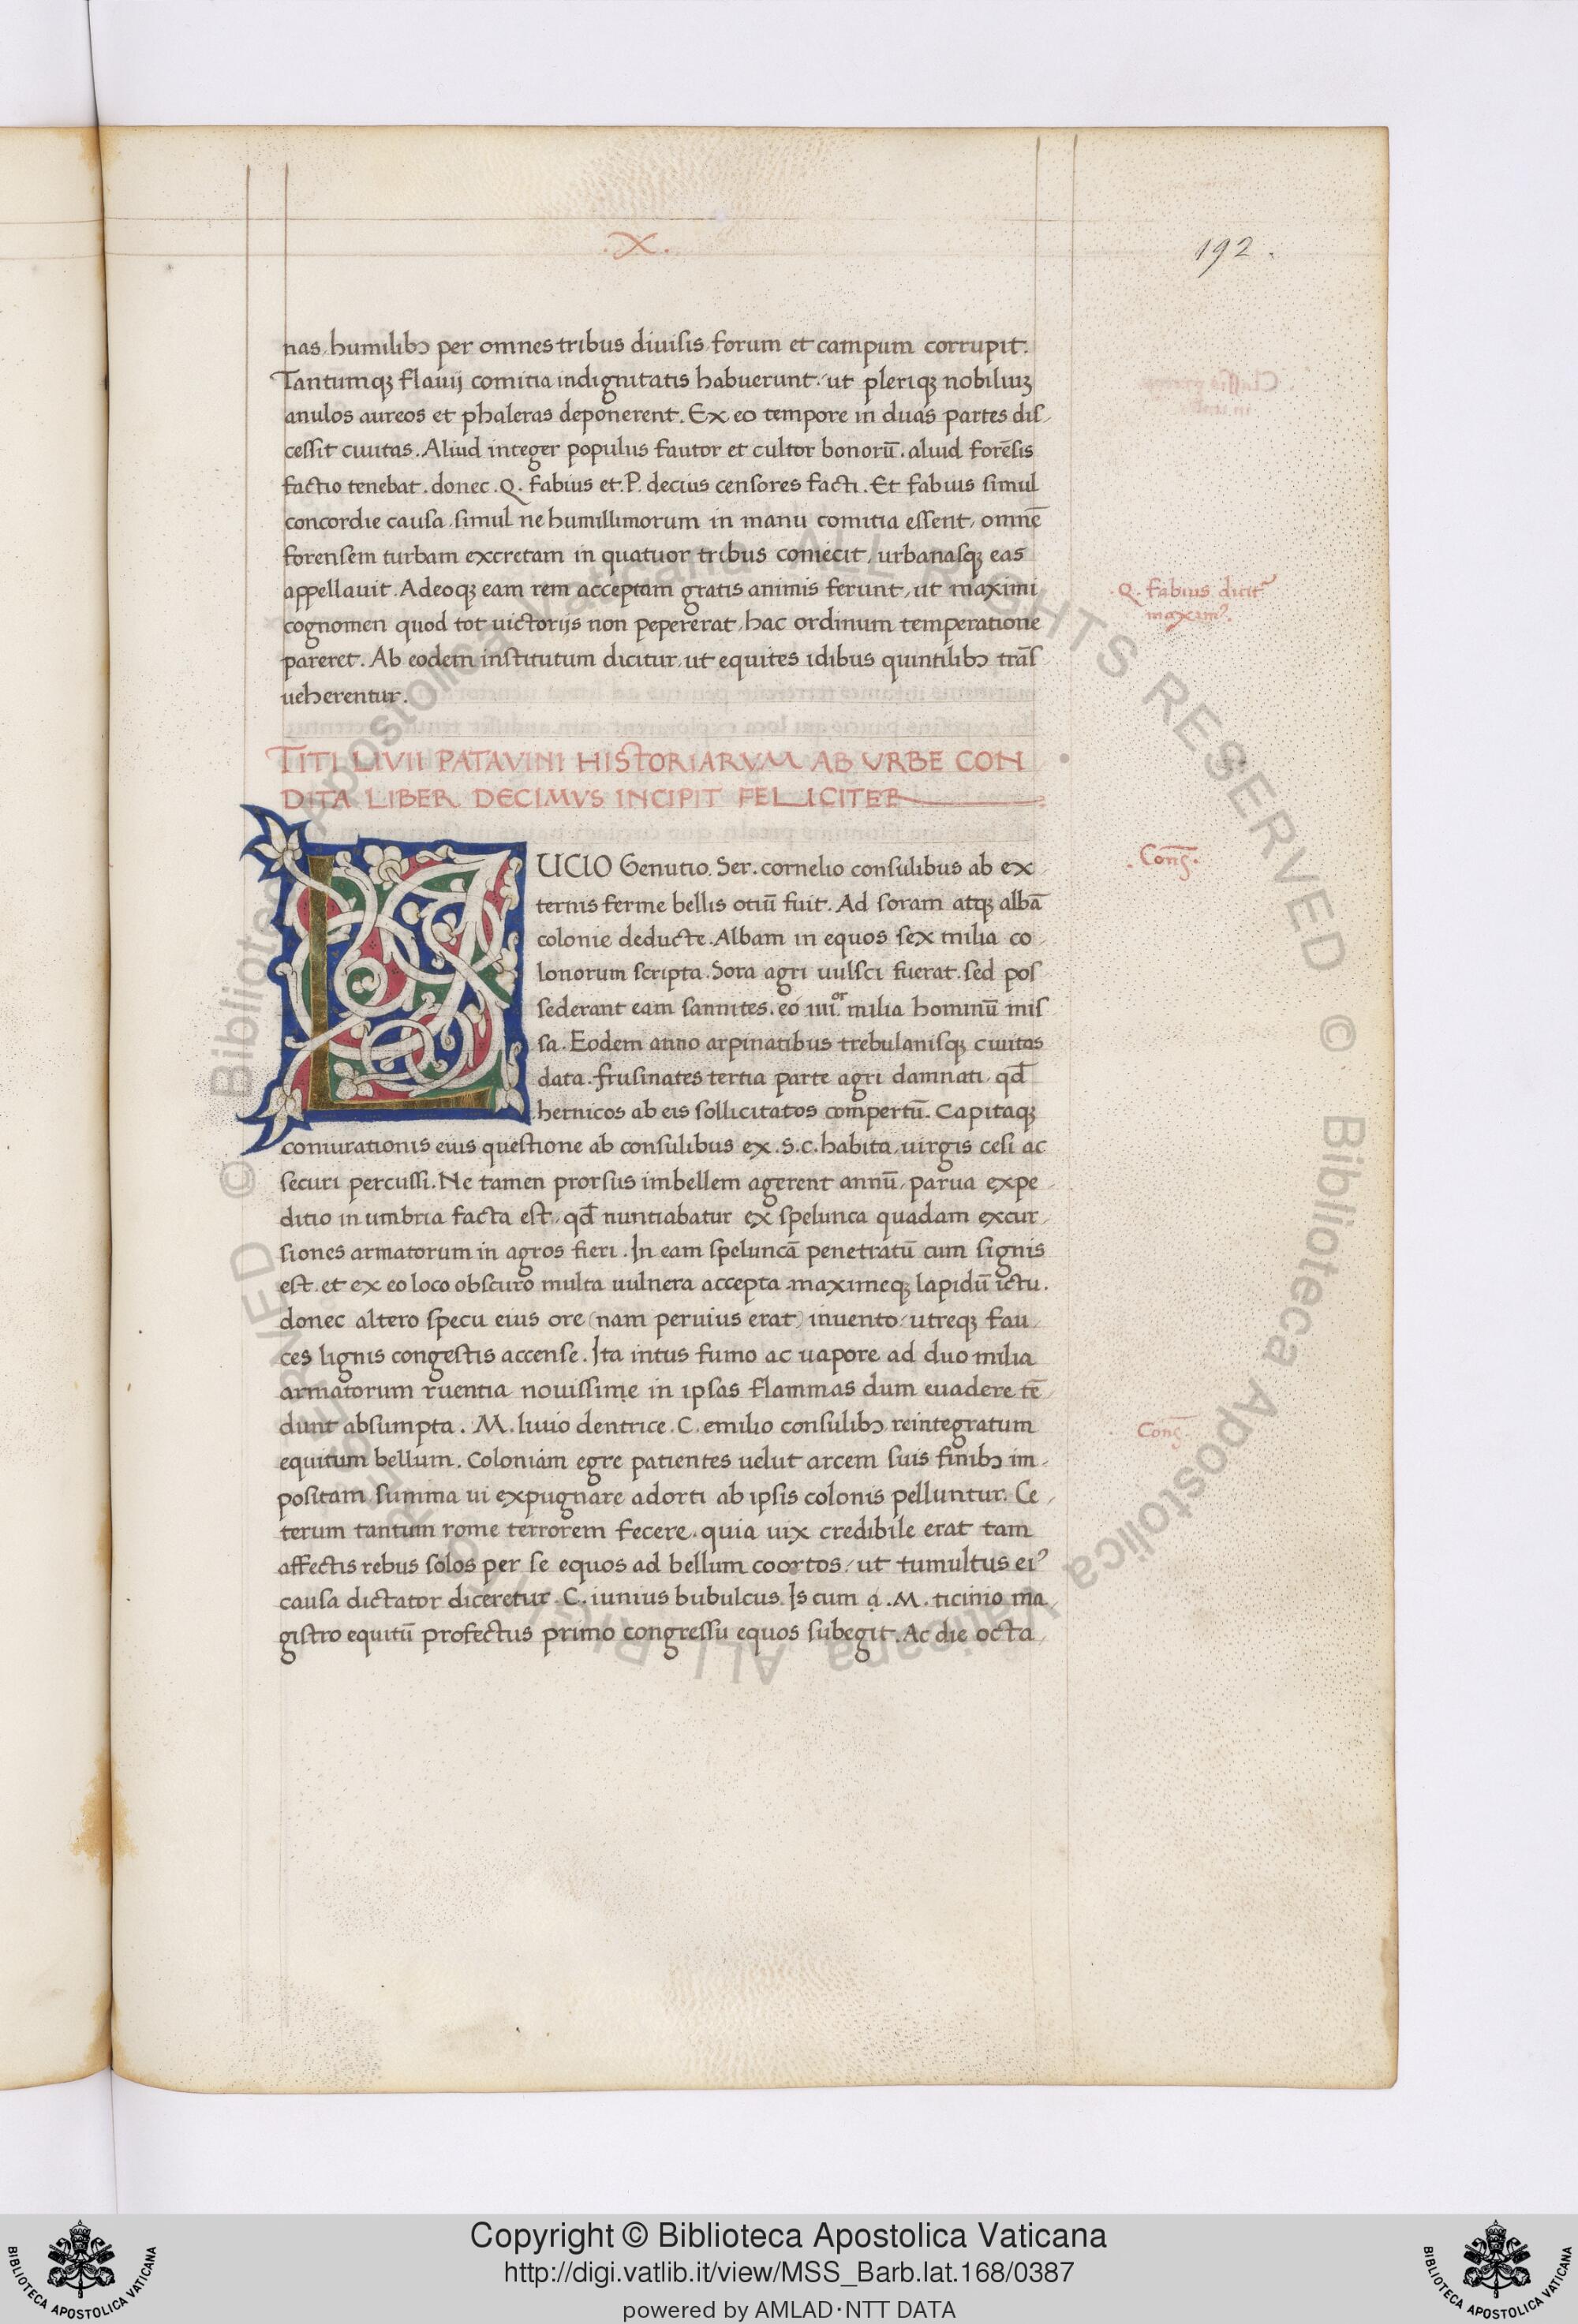 .X.
192.
nas, humilibɔ per omnes tribus diuisis forum et campum corrupit.
Tantumqꝫ flauij comitia indignitatis habuerunt, ut pleriqꝫ nobiliuꝫ
anulos aureos et phaleras deponerent. Ex eo tempore in duas partes dis-
cessit ciuitas. Aliud integer populus fautor et cultor bonorū. aliud forēsis
factio tenebat. donec .Q. fabius et .P. decius censores facti. Et fabius simul
concordie causa, simul ne humillimorum in manu comitia essent, omnē
forensem turbam excretam in quatuor tribus coniecit, urbanasqꝫ eas
appellauit. Adeoqꝫ eam rem acceptam gratis animis ferunt, ut maximi
.Q. fabius dicit̄
maximꝰ.
cognomen quod tot uictorijs non pepererat, hac ordinum temperatione
pareret. Ab eodem institutum dicitur, ut equites idibus quintilibɔ trās
ueherentur.
TITI LIVII PATAVINI HISTORIARVM AB VRBE CON
DITA LIBER DECIMVS INCIPIT FELICITER
LUCIO Genutio. Ser. cornelio consulibus ab ex-
.Cons̄.
ternis ferme bellis otiū fuit. Ad soram atqꝫ albā
colonie deducte. Albam in equos sex milia co-
lonorum scripta. Sora agri uulsci fuerat. sed pos
sederant eam samnites. eo iiii.or milia hominū mis
sa. Eodem anno arpinatibus trebulanisqꝫ ciuitas
data. frusinates tertia parte agri damnati, qđ
hernicos ab eis sollicitatos compertū. Capitaqꝫ
coniurationis eius questione ab consulibus ex .S.C. habita, uirgis cesi ac
securi percussi. Ne tamen prorsus imbellem agerent annū, parua expe-
ditio in umbria facta est, qđ nuntiabatur ex spelunca quadam excur-
siones armatorum in agros fieri. In eam speluncā penetratū cum signis
est. et ex eo loco obscuro multa uulnera accepta maximeqꝫ lapidū ictu.
donec altero specu eius ore (nam peruius erat) inuento, utreqꝫ fau-
ces lignis congestis accense. Ita intus fumo ac uapore ad duo milia
armatorum ruentia nouissime in ipsas flammas dum euadere tē-
dunt absumpta. M. liuio dentrice .C. emilio consulibɔ reintegratum
Cons̄.
equitum bellum. Coloniam egre patientes uelut arcem suis finibɔ im-
positam summa ui expugnare adorti ab ipsis colonis pelluntur. Ce-
terum tantum rome terrorem fecere. quia uix credibile erat tam
affectis rebus solos per se equos ad bellum coortos, ut tumultus eiꝰ
causa dictator diceretur .C. iunius bubulcus. Is cum a .M. ticinio ma-
gistro equitū profectus primo congressu equos subegit. Ac die octa-
Copyright © Biblioteca Apostolica Vaticana
http://digi.vatlib.it/view/MSS_Barb.lat.168/0387
powered by AMLAD·NTT DATA
BIBLIOTECA APOSTOLICA VATICANA
BIBLIOTECA APOSTOLICA VATICANA